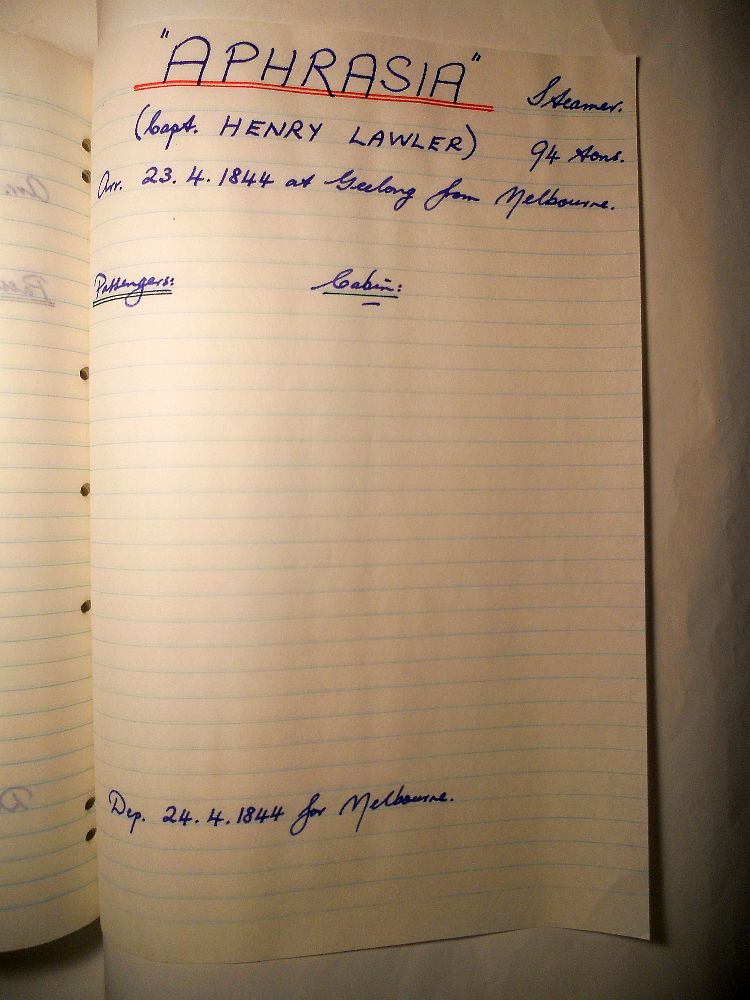 "APHRASIA" Steamer.
(Capt. HENRY LAWLER) 94 tons.
Arr. 23.4.1844 at Geelong from Melbourne.
Passengers: Cabin:
Dep. 24.4.1844 for Melbourne.